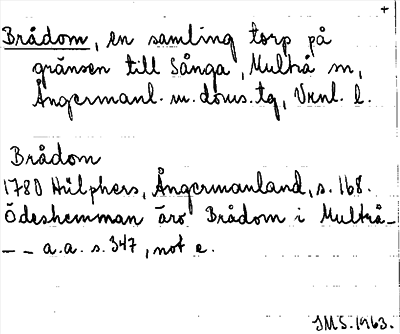 +
Brådom, en samling torp på
gränsen till Sånga, Multrå sn,
Ångermanl. s.doms.tg, Vnl. l.
Brådom
1780 Hülphers, Ångermanland, s. 168.
Ödeshemman äro Brådom i Multrå
– – a.a. s. 347, not e.
JMS. 1963.